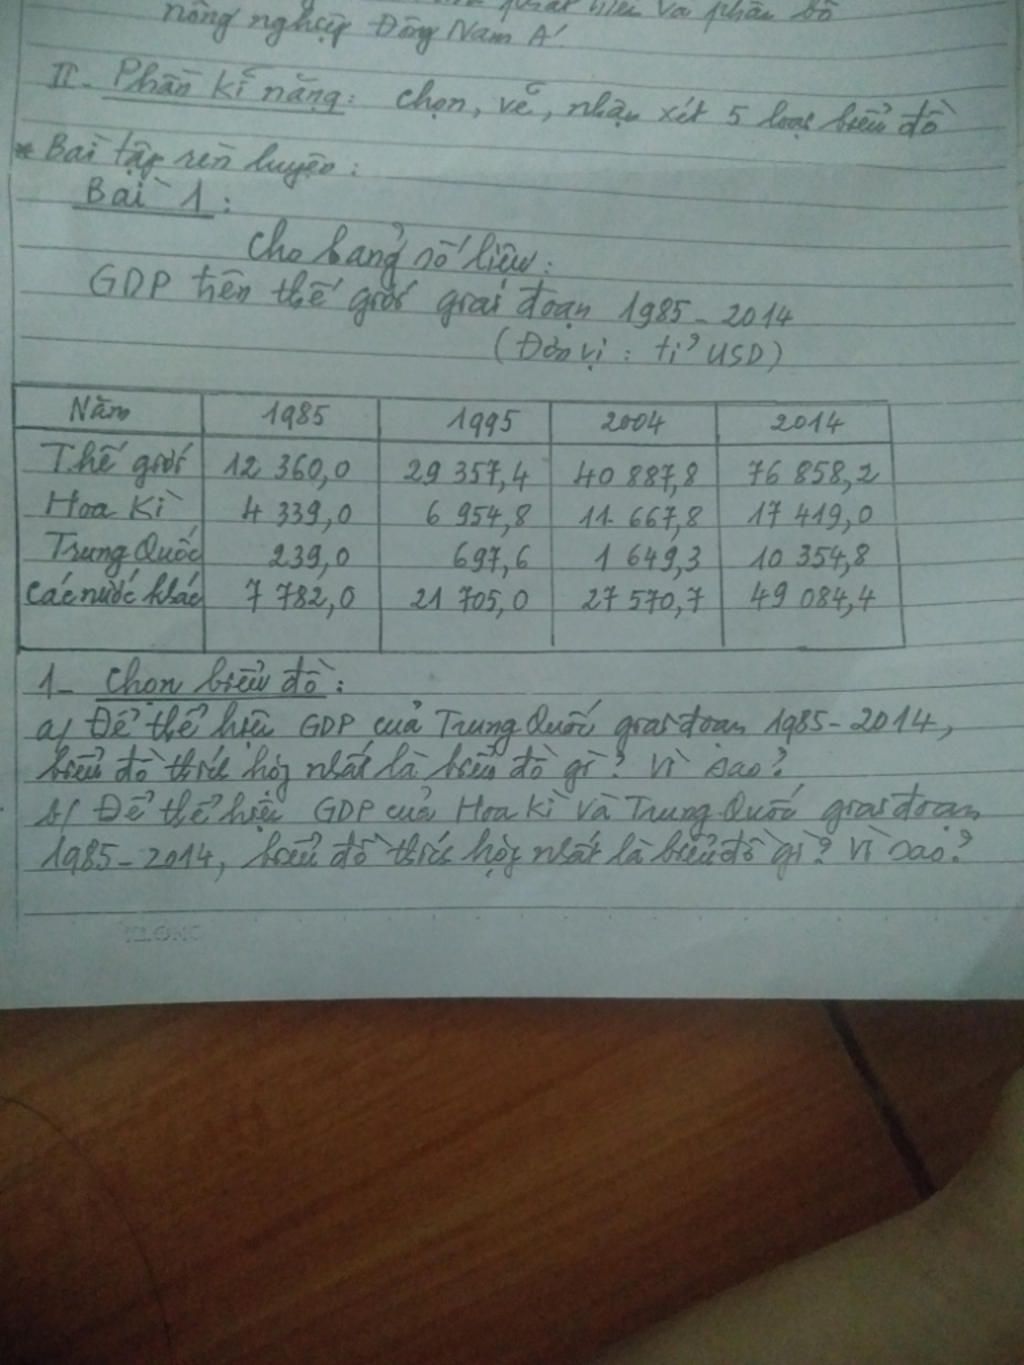 phát triển và phân bố
nông nghiệp Đông Nam Á.
II - Phần kĩ năng: chọn, vẽ, nhận xét 5 loại biểu đồ
* Bài tập rèn luyện:
Bài 1:
Cho bảng số liệu:
GDP trên thế giới giai đoạn 1985 - 2014
(Đơn vị: tỉ USD)
Năm 1985 1995 2004 2014
Thế giới 12 360,0 29 357,4 40 887,8 76 858,2
Hoa Kì 4 339,0 6 954,8 11 667,8 17 419,0
Trung Quốc 239,0 697,6 1 649,3 10 354,8
Các nước khác 7 782,0 21 705,0 27 570,7 49 084,4
1- Chọn biểu đồ:
a/ Để thể hiện GDP của Trung Quốc giai đoạn 1985-2014,
biểu đồ thích hợp nhất là biểu đồ gì? Vì sao?
b/ Để thể hiện GDP của Hoa Kì và Trung Quốc giai đoạn
1985-2014, biểu đồ thích hợp nhất là biểu đồ gì? Vì sao?